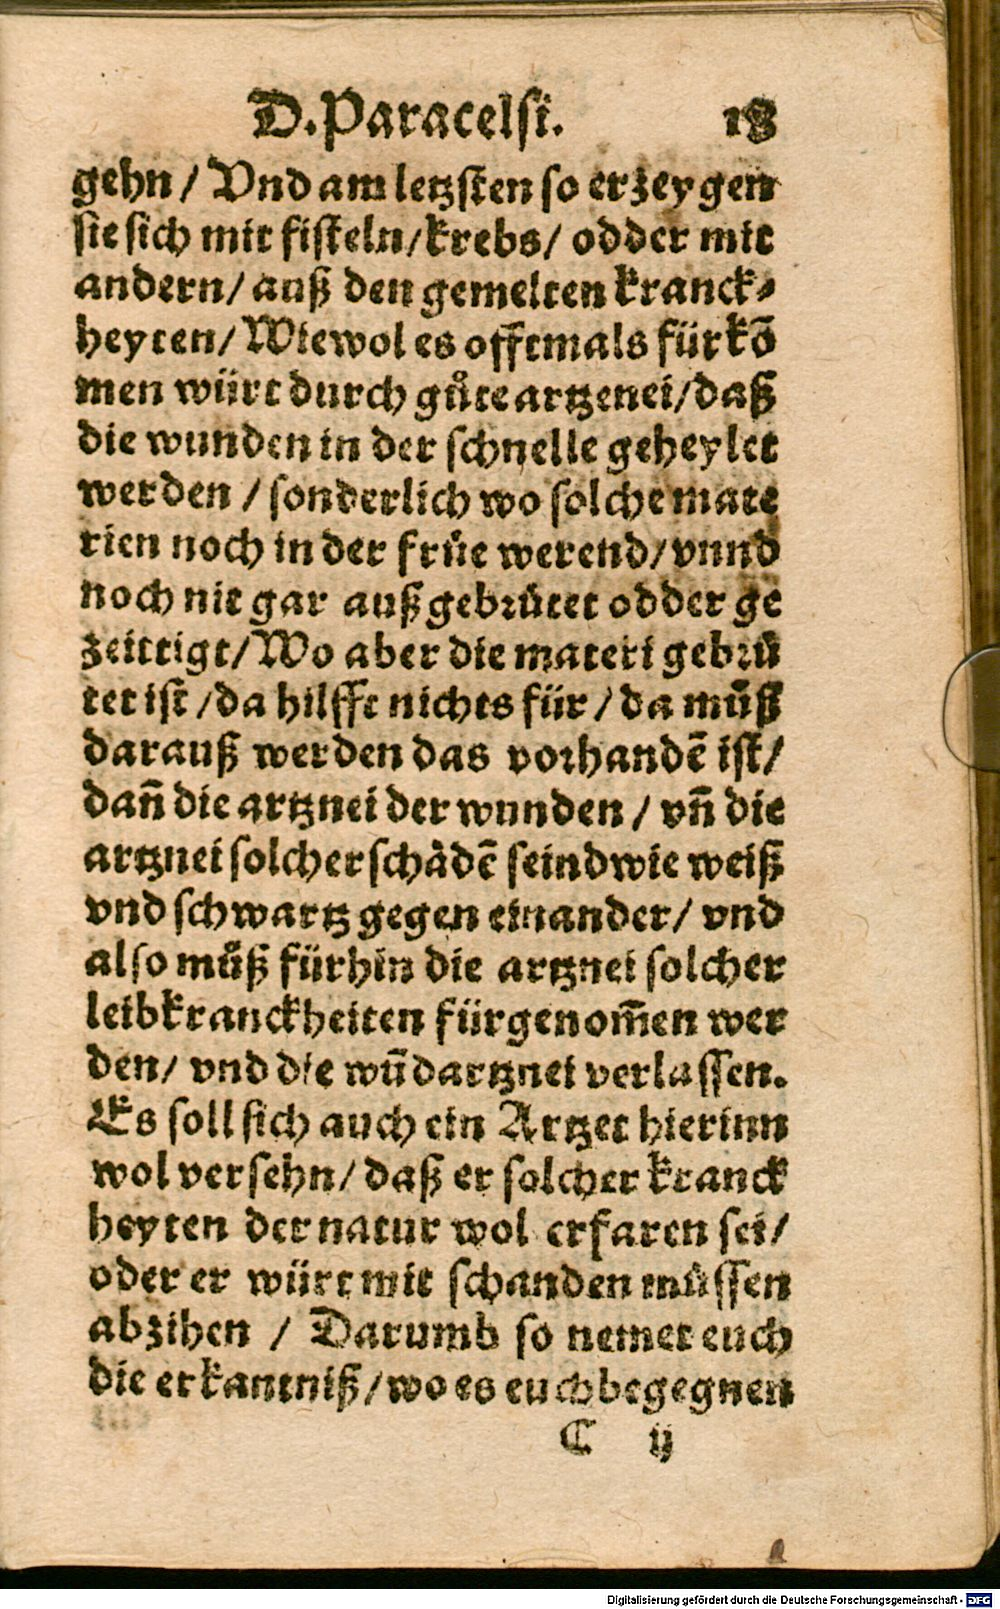 D. Paracelsi. 18
gehn / Vnd am letzsten so erzeygen
sie sich mit fisteln / krebs / odder mit
andern / auß den gemelten kranck⸗
heyten / Wiewol es offtmals fürkõ
men würt durch gůte artzenei / daß
die wunden in der schnelle geheylet
werden / sonderlich wo solche mate
rien noch in der früe werend / vnnd
noch nit gar außgebrütet odder ge
zeittigt / Wo aber die materi gebrü
tet ist / da hilfft nichts für / da můß
darauß werden das vorhandẽ ist /
dañ die artznei der wunden / vñ die
artznei solcher schådẽ seind wie weiß
vnd schwartz gegen einander / vnd
also můß fürhin die artznei solcher
leibkranckheiten fürgenom̃en wer
den / vnd die wũdartznei verlassen.
Es soll sich auch ein Artzet hierinn
wol versehn / daß er solcher kranck
heyten der natur wol erfaren sei /
oder er würt mit schanden müssen
abzihen / Darumb so nemet euch
die erkantniß / wo es euch begegnen
C ij
Digitalisierung gefördert durch die Deutsche Forschungsgemeinschaft - DFG